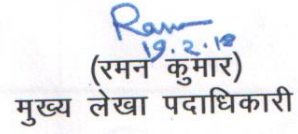 19.2.18
(रमन कुमार)
मुख्य लेखा पदाधिकारी